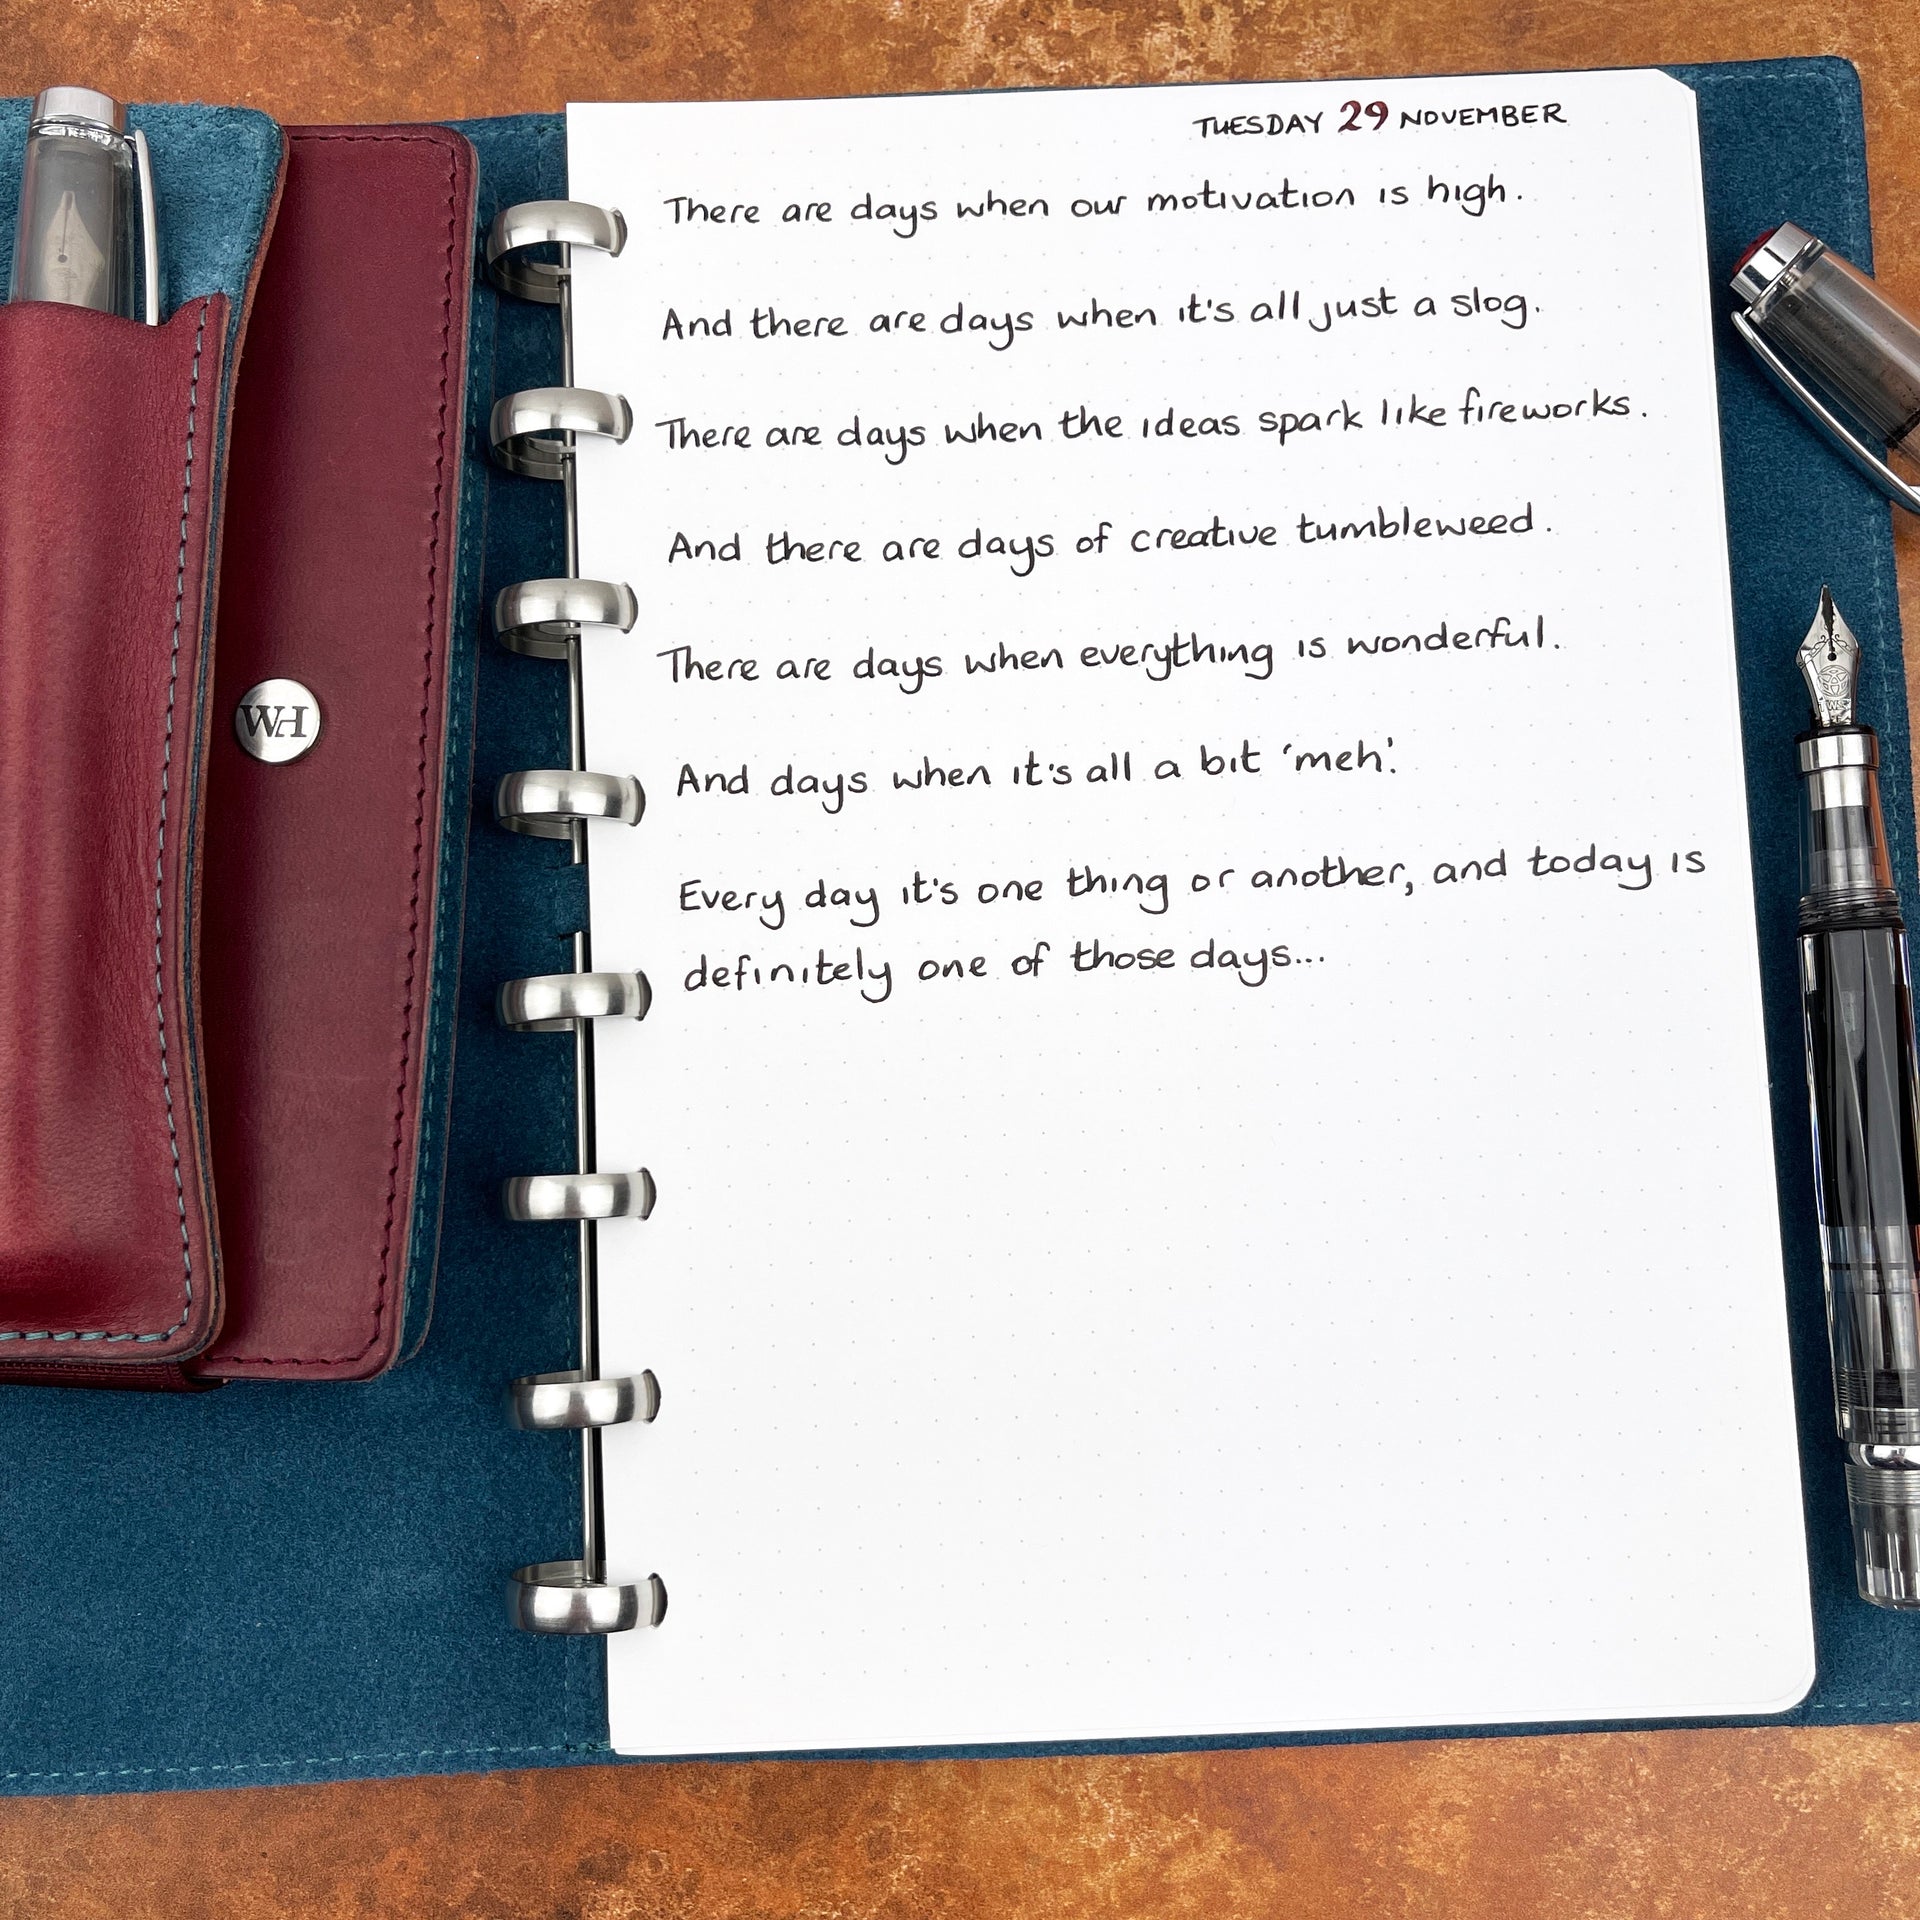 TUESDAY 29 NOVEMBER
There are days when our motivation is high.
And there are days when it's all just a slog.
There are days when the ideas spark like fireworks.
And there are days of creative tumbleweed.
There are days when everything is wonderful.
And days when it's all a bit 'meh'.
Every day it's one thing or another, and today is
definitely one of those days...
WH